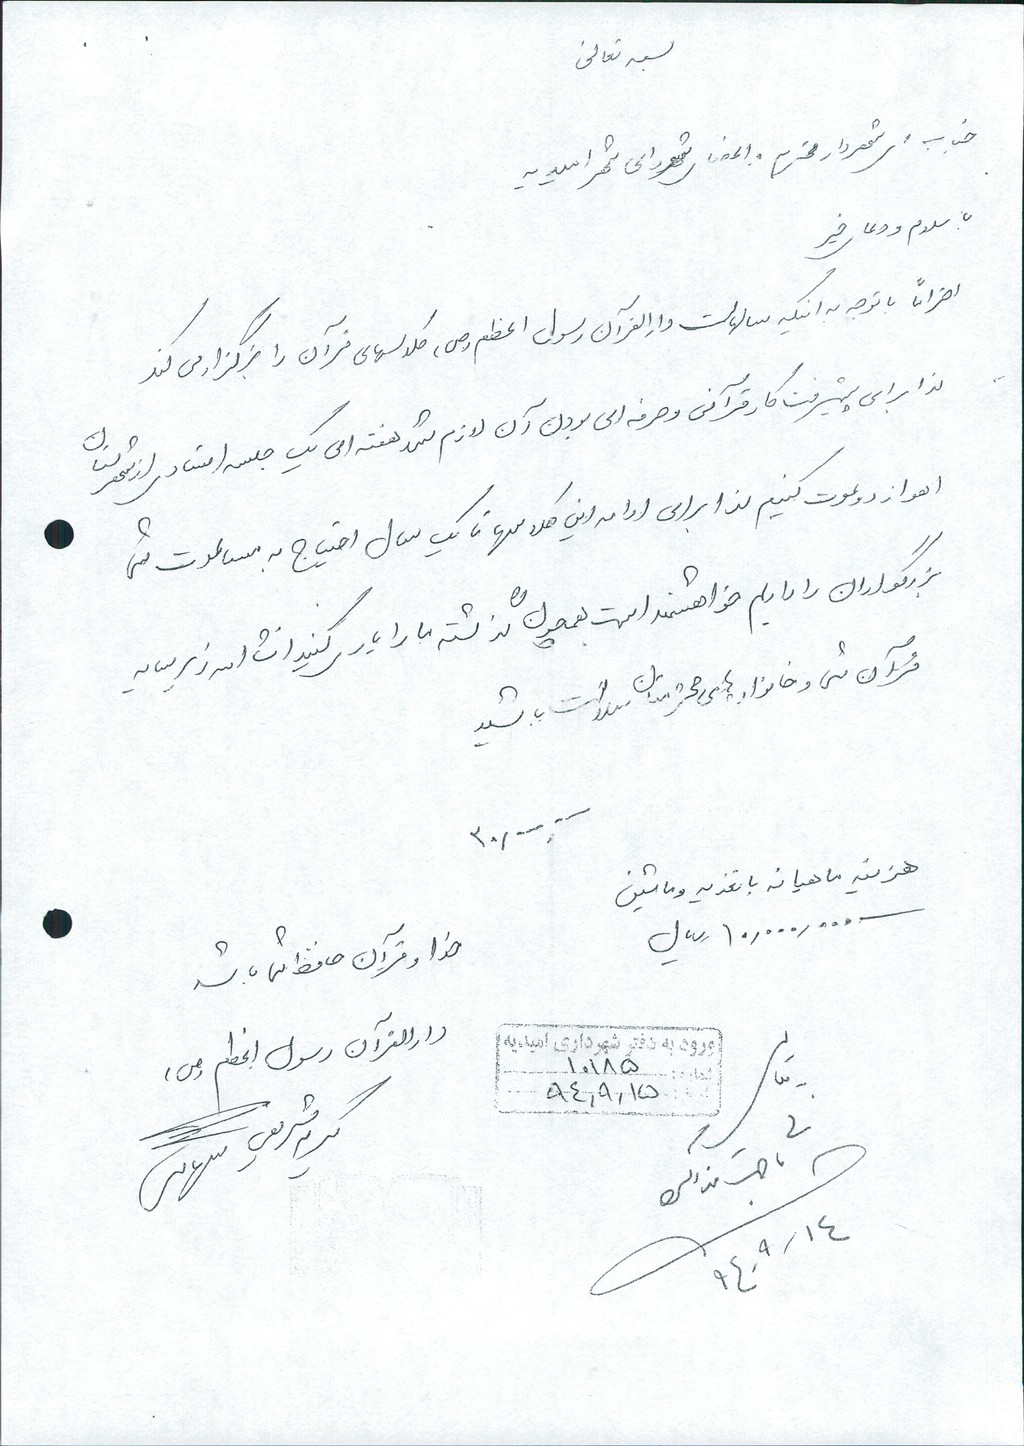 بسمه تعالی
جناب شهردار محترم و اعضای شورای شهر امیدیه
با سلام و دعای خیر
احتراماً با توجه به اینکه سالهاست دارالقرآن رسول اعظم (ص) کلاسهای قرآن را برگزار می کند
لذا برای پیشرفت کار قرآنی و حرفه ای بودن آن لازم شد هفته ای یک جلسه استادی از شهرستان
اهواز دعوت کنیم لذا برای ادامه این کلاسها تا یک سال احتیاج به مساعدت شما
بزرگواران را داریم خواهشمند است همچون گذشته ما را یاری کنید انشااله زیر سایه
قرآن شما و خانواده های محترمتان سلامت باشید
۳۰/۰۰۰/۰۰۰
هزینه ماهیانه با تغذیه و ماشین
۱۰/۰۰۰/۰۰۰ ریال
خدا و قرآن حافظ شما باشد
دارالقرآن رسول اعظم (ص)
شریفی
ورود به دفتر شهرداری امیدیه
شماره: ۱۰۱۸۵
۹٤/۹/۱۵
۹٤/۹/۱٤